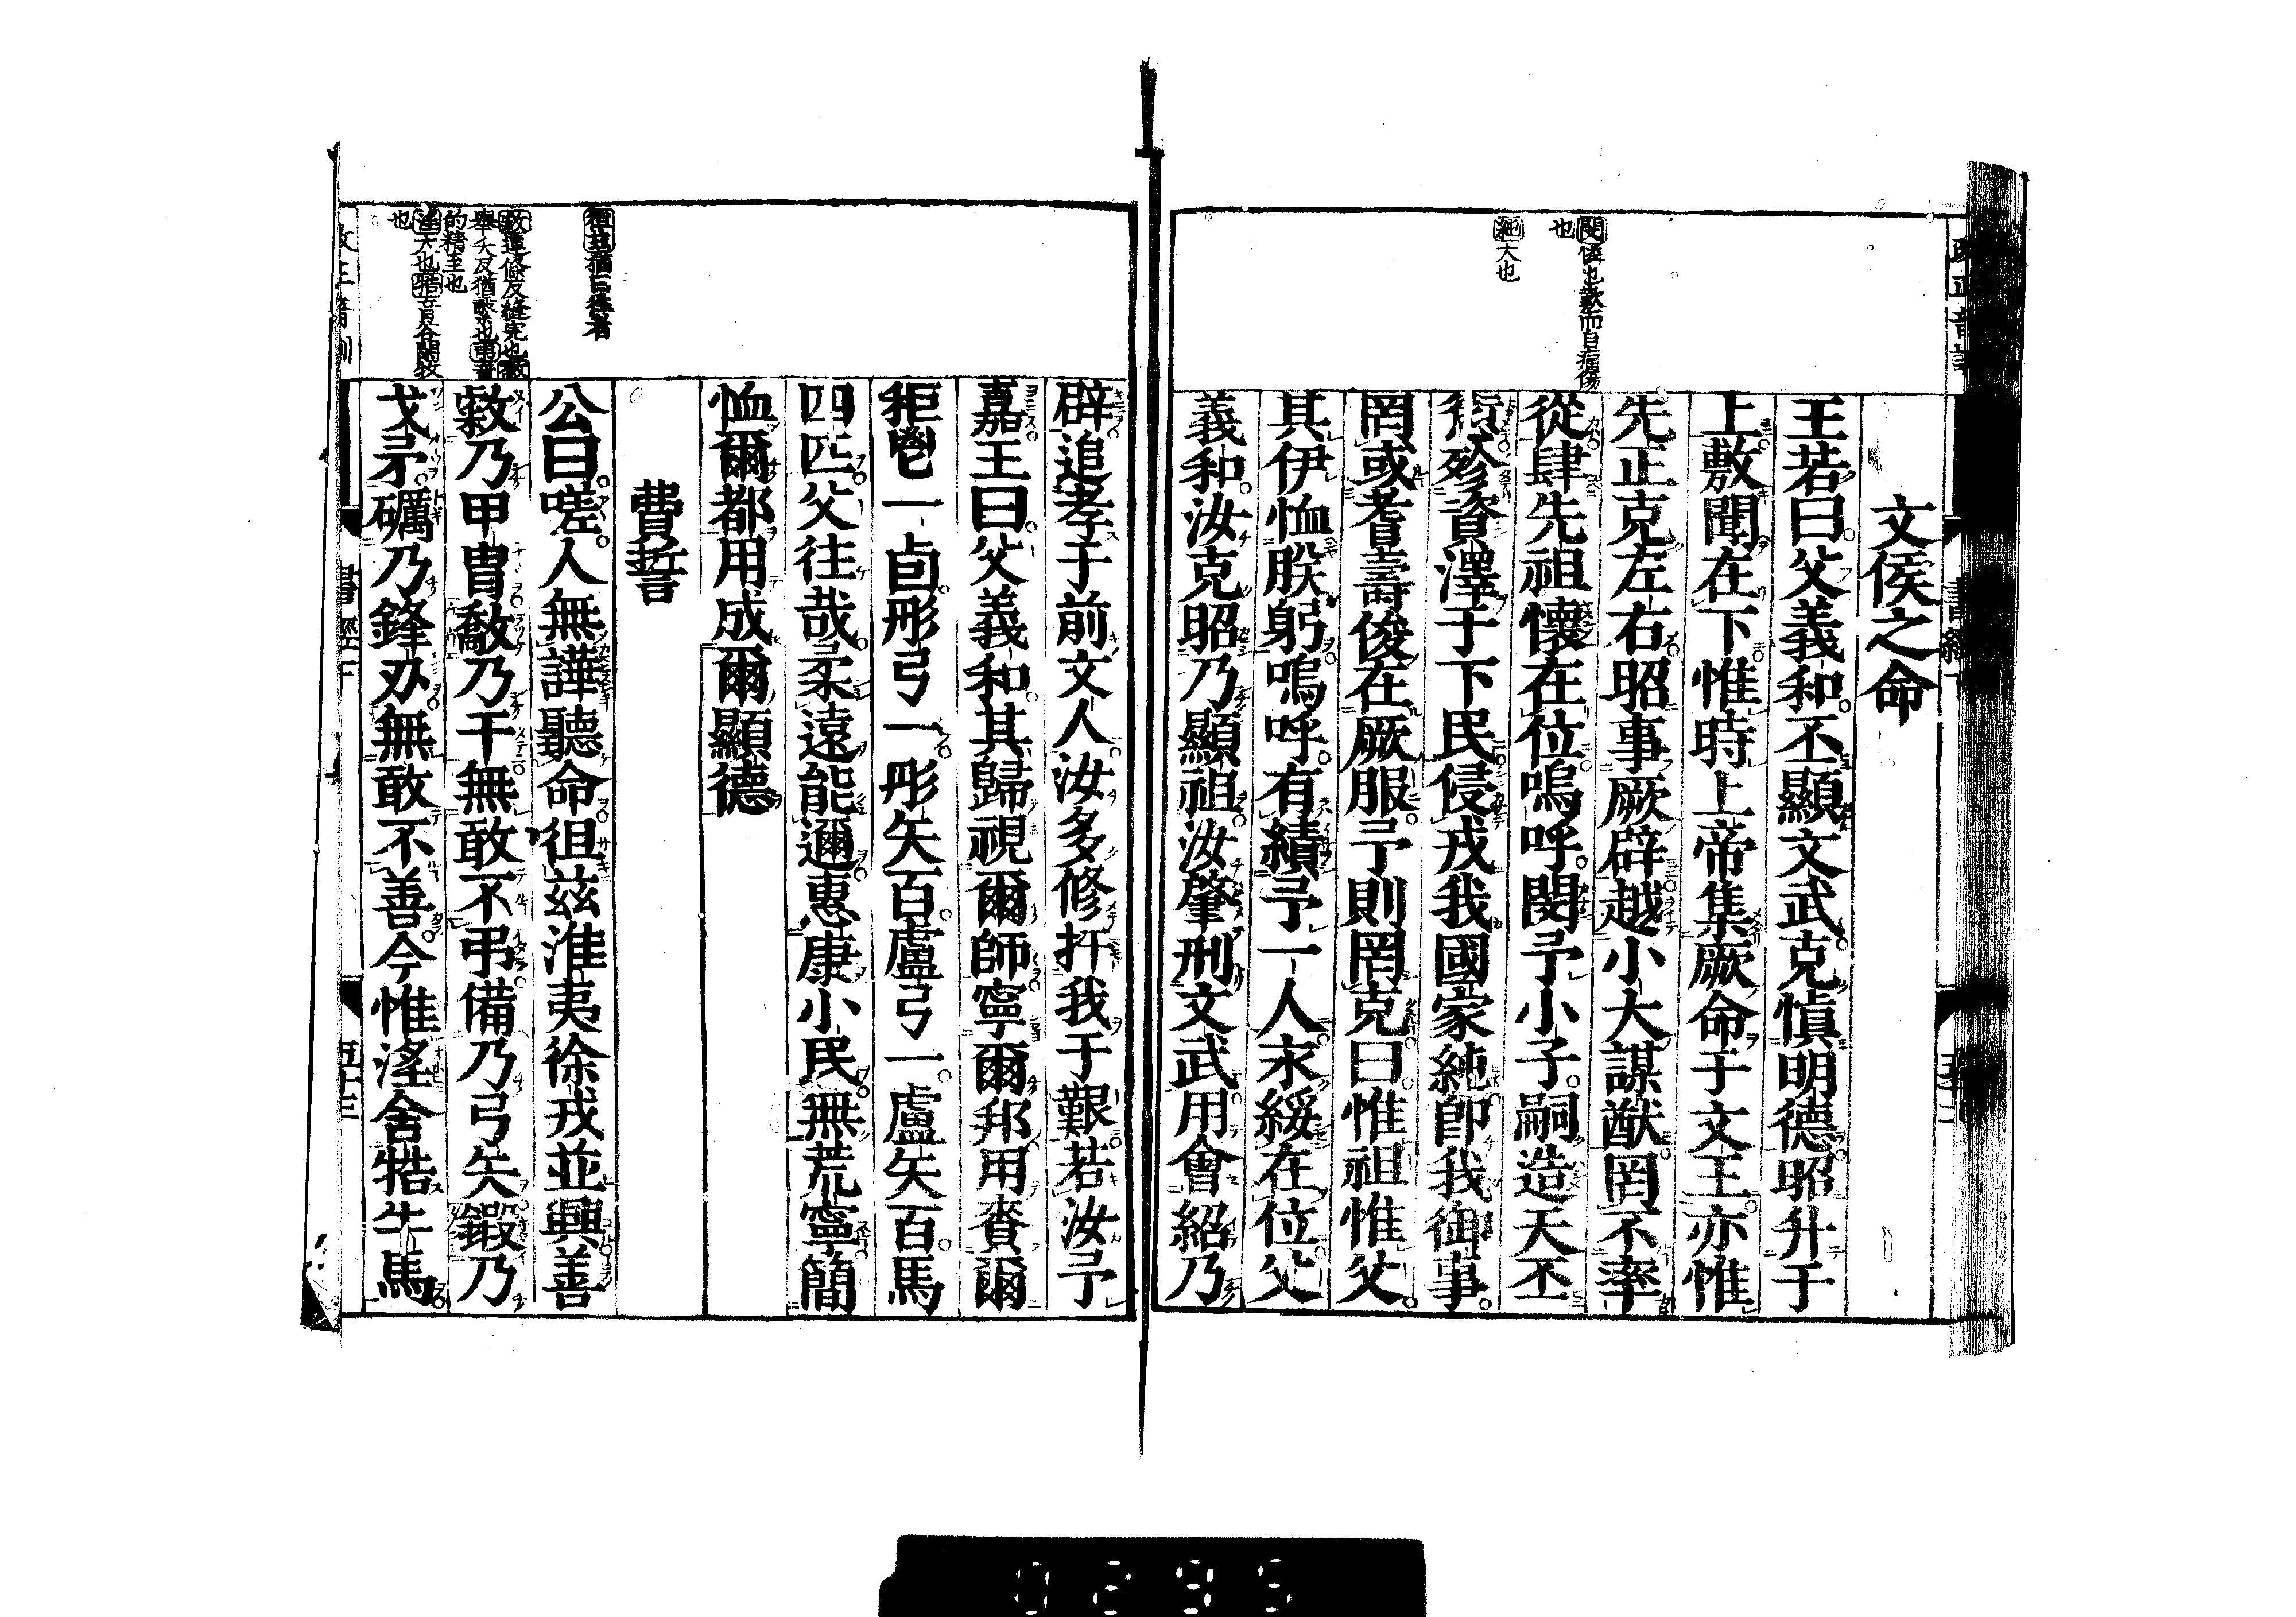 文侯之命
王若曰父義和丕顯文武克愼明德昭升于
上敷聞在下惟時上帝集厥命于文王亦惟
先正克左右昭事厥辟越小大謀猷罔不率
從肆先祖懷在位嗚呼閔予小子嗣造天丕
愆殄資澤于下民侵戎我國家純卽我御事
罔或耆壽俊在厥服予則罔克曰惟祖惟父
其伊恤朕躬嗚呼有績予一人永綏在位父
義和汝克昭乃顯祖汝肇刑文武用會紹乃
閔憐也歎而自痛傷
也
純大也
辟追孝于前文人汝多修扞我于艱若汝予
嘉王曰父義和其歸視爾師寧爾邦用賚爾
秬鬯一卣彤弓一彤矢百盧弓一盧矢百馬
四匹父往哉柔遠能邇惠康小民無荒寧簡
恤爾都用成爾顯德
費誓
公曰嗟人無譁聽命徂茲淮夷徐戎並興善
敹乃甲冑敿乃干無敢不弔備乃弓矢鍛乃
戈矛礪乃鋒刃無敢不善今惟淫舍牿牛馬
徂茲猶曰往者
敹蓮條反縫完也敿
舉夭反猶繫也弔音
的精至也
淫大也牿音谷閑牧
也
書經下
五十三
0295